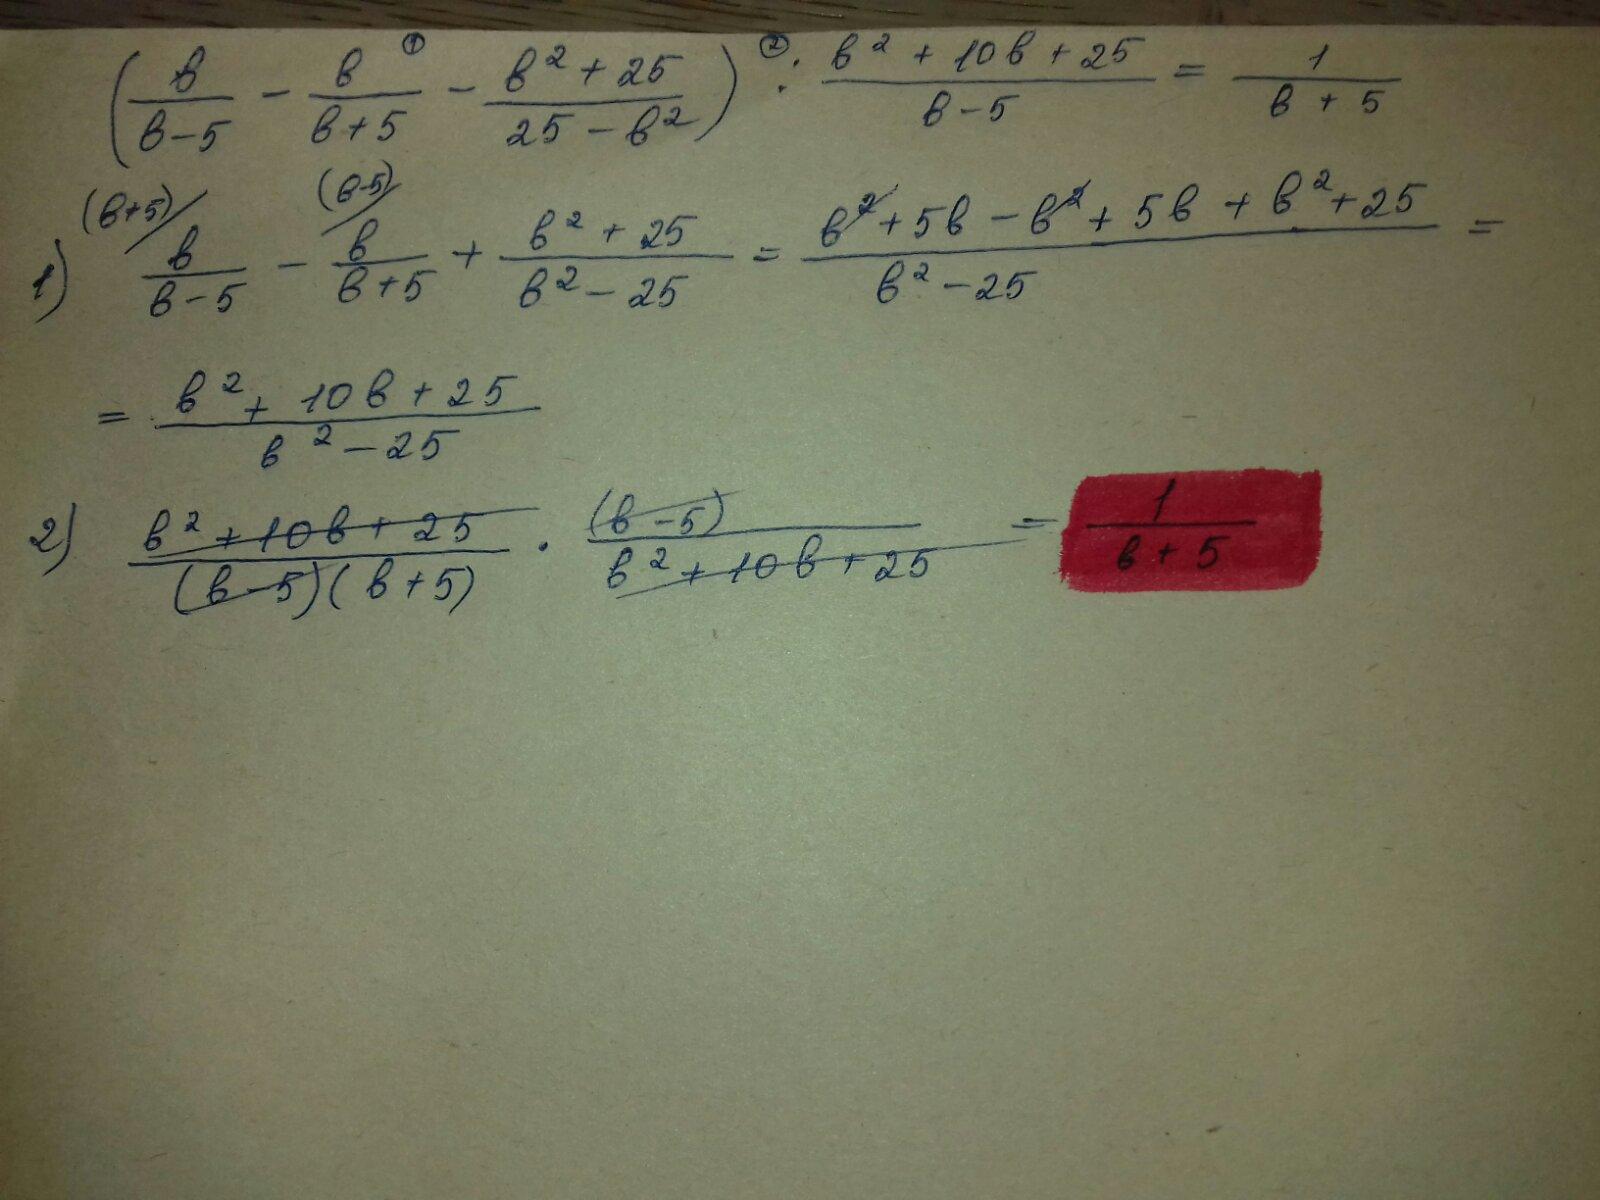 (в/(в-5) - в/(в+5) - (в²+25)/(25-в²)) : (в²+10в+25)/(в-5) = 1/(в+5)
① ②
(в+5) (в-5)
1) в/(в-5) - в/(в+5) + (в²+25)/(в²-25) = (в²+5в-в²+5в+в²+25)/(в²-25) =
= (в²+10в+25)/(в²-25)
2) (в²+10в+25)/((в-5)(в+5)) · (в-5)/(в²+10в+25) = 1/(в+5)